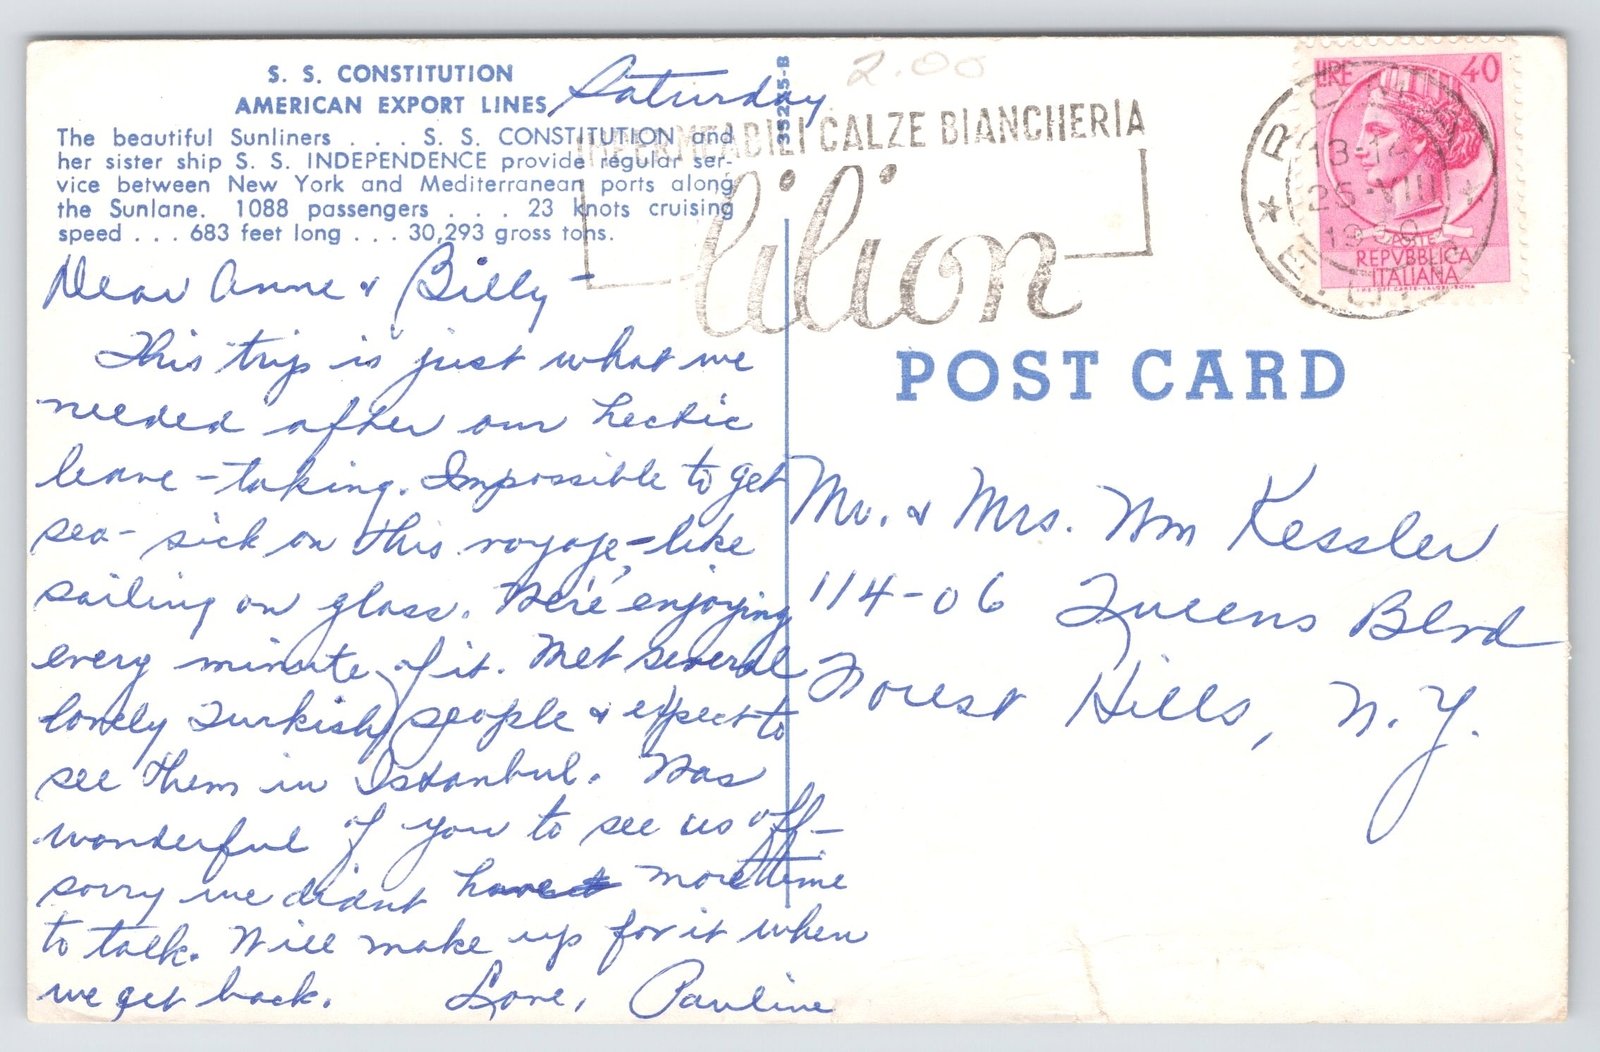 S. S. CONSTITUTION
AMERICAN EXPORT LINES
The beautiful Sunliners . . . S. S. CONSTITUTION and
her sister ship S. S. INDEPENDENCE provide regular ser-
vice between New York and Mediterranean ports along
the Sunlane. 1088 passengers . . . 23 knots cruising
speed . . . 683 feet long . . . 30,293 gross tons.
Saturday
Dear Anne & Billy –
This trip is just what we
needed after our hectic
leave-taking. Impossible to get
sea-sick on this voyage, – like
sailing on glass. We're enjoying
every minute of it. Met several
lovely Turkish people & expect to
see them in Istanbul. Was
wonderful of you to see us off –
sorry we didnt have more time
to talk. Will make up for it when
we get back. Love, Pauline
35215-B
2.00
CALZE BIANCHERIA
lilion
ROMA
13-14
25-VIII
LIRE 40
POSTE
REPVBBLICA
ITALIANA
POST CARD
Mr. & Mrs. Wm Kessler
114-06 Queens Blvd
Forest Hills, N.Y.